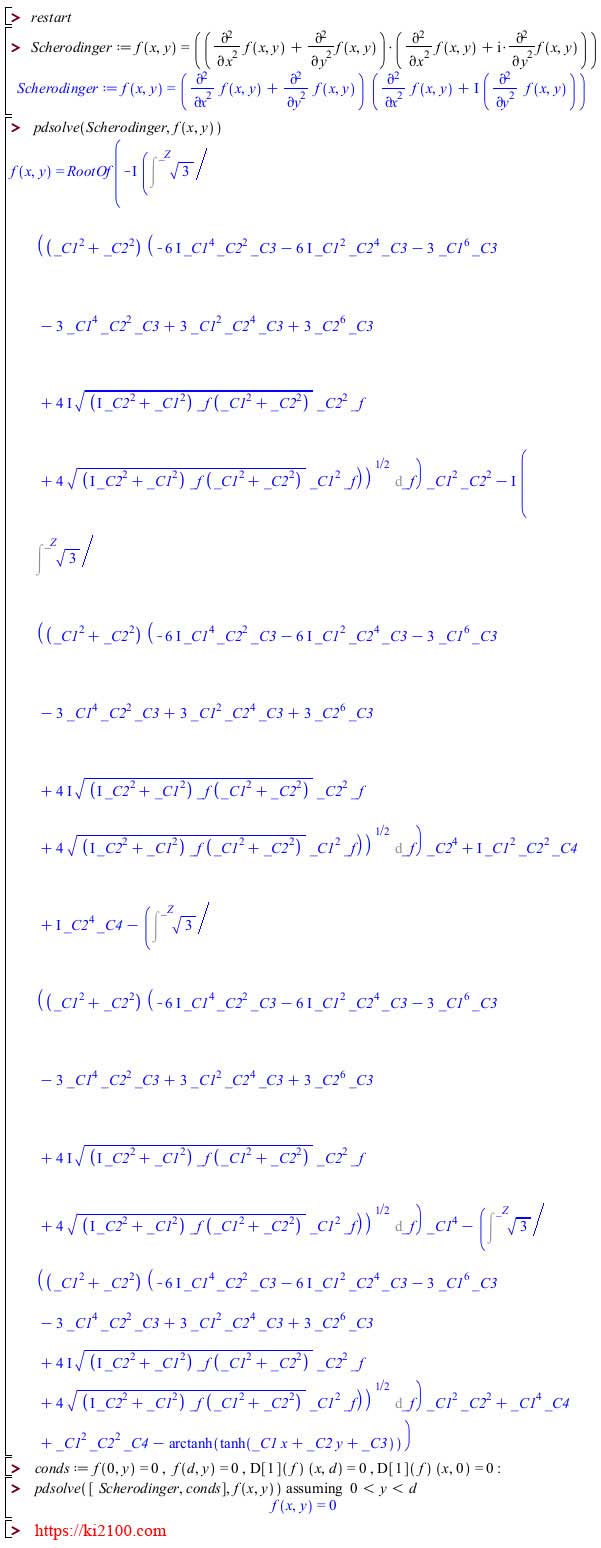 > restart
> Scherodinger := f(x, y) = ((∂²/∂x² f(x, y) + ∂²/∂y² f(x, y))·(∂²/∂x² f(x, y) + i·∂²/∂y² f(x, y)))
Scherodinger := f(x, y) = (∂²/∂x² f(x, y) + ∂²/∂y² f(x, y)) (∂²/∂x² f(x, y) + I (∂²/∂y² f(x, y)))
> pdsolve(Scherodinger, f(x, y))
f(x, y) = RootOf(-I (∫^_Z √3 /
((_C1² + _C2²) (-6 I _C1⁴ _C2² _C3 − 6 I _C1² _C2⁴ _C3 − 3 _C1⁶ _C3
− 3 _C1⁴ _C2² _C3 + 3 _C1² _C2⁴ _C3 + 3 _C2⁶ _C3
+ 4 I √((I _C2² + _C1²) _f (_C1² + _C2²)) _C2² _f
+ 4 √((I _C2² + _C1²) _f (_C1² + _C2²)) _C1² _f))^1/2 d_f) _C1² _C2² − I (
∫^_Z √3 /
((_C1² + _C2²) (-6 I _C1⁴ _C2² _C3 − 6 I _C1² _C2⁴ _C3 − 3 _C1⁶ _C3
− 3 _C1⁴ _C2² _C3 + 3 _C1² _C2⁴ _C3 + 3 _C2⁶ _C3
+ 4 I √((I _C2² + _C1²) _f (_C1² + _C2²)) _C2² _f
+ 4 √((I _C2² + _C1²) _f (_C1² + _C2²)) _C1² _f))^1/2 d_f) _C2⁴ + I _C1² _C2² _C4
+ I _C2⁴ _C4 − (∫^_Z √3 /
((_C1² + _C2²) (-6 I _C1⁴ _C2² _C3 − 6 I _C1² _C2⁴ _C3 − 3 _C1⁶ _C3
− 3 _C1⁴ _C2² _C3 + 3 _C1² _C2⁴ _C3 + 3 _C2⁶ _C3
+ 4 I √((I _C2² + _C1²) _f (_C1² + _C2²)) _C2² _f
+ 4 √((I _C2² + _C1²) _f (_C1² + _C2²)) _C1² _f))^1/2 d_f) _C1⁴ − (∫^_Z √3 /
((_C1² + _C2²) (-6 I _C1⁴ _C2² _C3 − 6 I _C1² _C2⁴ _C3 − 3 _C1⁶ _C3
− 3 _C1⁴ _C2² _C3 + 3 _C1² _C2⁴ _C3 + 3 _C2⁶ _C3
+ 4 I √((I _C2² + _C1²) _f (_C1² + _C2²)) _C2² _f
+ 4 √((I _C2² + _C1²) _f (_C1² + _C2²)) _C1² _f))^1/2 d_f) _C1² _C2² + _C1⁴ _C4
+ _C1² _C2² _C4 − arctanh(tanh(_C1 x + _C2 y + _C3)))
> conds := f(0, y) = 0 , f(d, y) = 0 , D[1](f) (x, d) = 0 , D[1](f) (x, 0) = 0 :
> pdsolve([ Scherodinger, conds], f(x, y)) assuming 0 < y < d
f(x, y) = 0
> https://ki2100.com